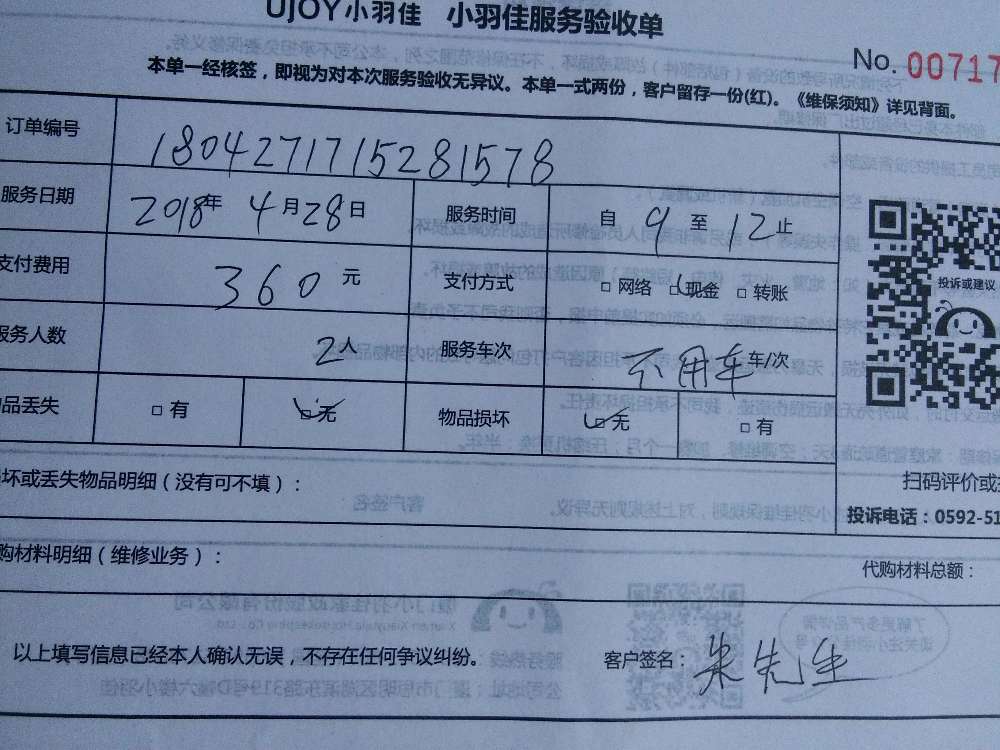 UJOY小羽佳 小羽佳服务验收单
No. 00717
本单一经核签，即视为对本次服务验收无异议。本单一式两份，客户留存一份(红)。《维保须知》详见背面。
订单编号 180427171528​1578
服务日期 2018年 4月28日 服务时间 自 9 至 12 止
支付费用 360 元 支付方式 □ 网络 □ 现金 □ 转账
服务人数 2人 服务车次 不用车 车/次
品丢失 □ 有 □ 无 物品损坏 □ 无 □ 有
投诉或建议
坏或丢失物品明细（没有可不填）：
扫码评价或
投诉电话：0592-51
购材料明细（维修业务）：
代购材料总额：
以上填写信息已经本人确认无误，不存在任何争议纠纷。 客户签名： 朱先生